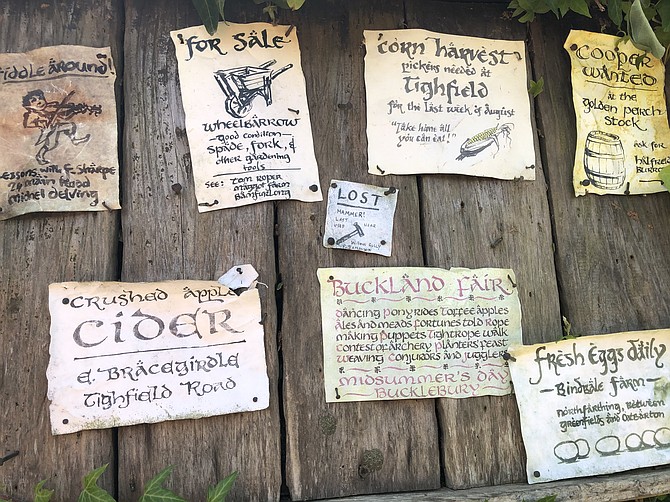 iddle Around
essons with F. Sharpe
29 main road
michel delving
For Sale
wheelbarrow
good condition
spade, fork, &
other gardening
tools
see: Tom Roper
maggot farm
Bamfurlong
corn harvest
pickers needed at
Tighfield
for the last week of august
"Take home all
you can eat!"
Cooper
wanted
at the
golden perch
stock
ask for
halfred
Burrt
LOST
HAMMER!
LOST
NEAR
crushed apple
cider
E. Bracegirdle
Tighfield Road
Buckland Fair
dancing pony rides toffee apples
ales and meads fortunes told rope
making puppets tightrope walk
contest of archery planters feast
weaving conjurors and jugglers
midsummer's day
Bucklebury
fresh eggs daily
Bindbale farm
northfarthing, between
greenfields and oatbarton